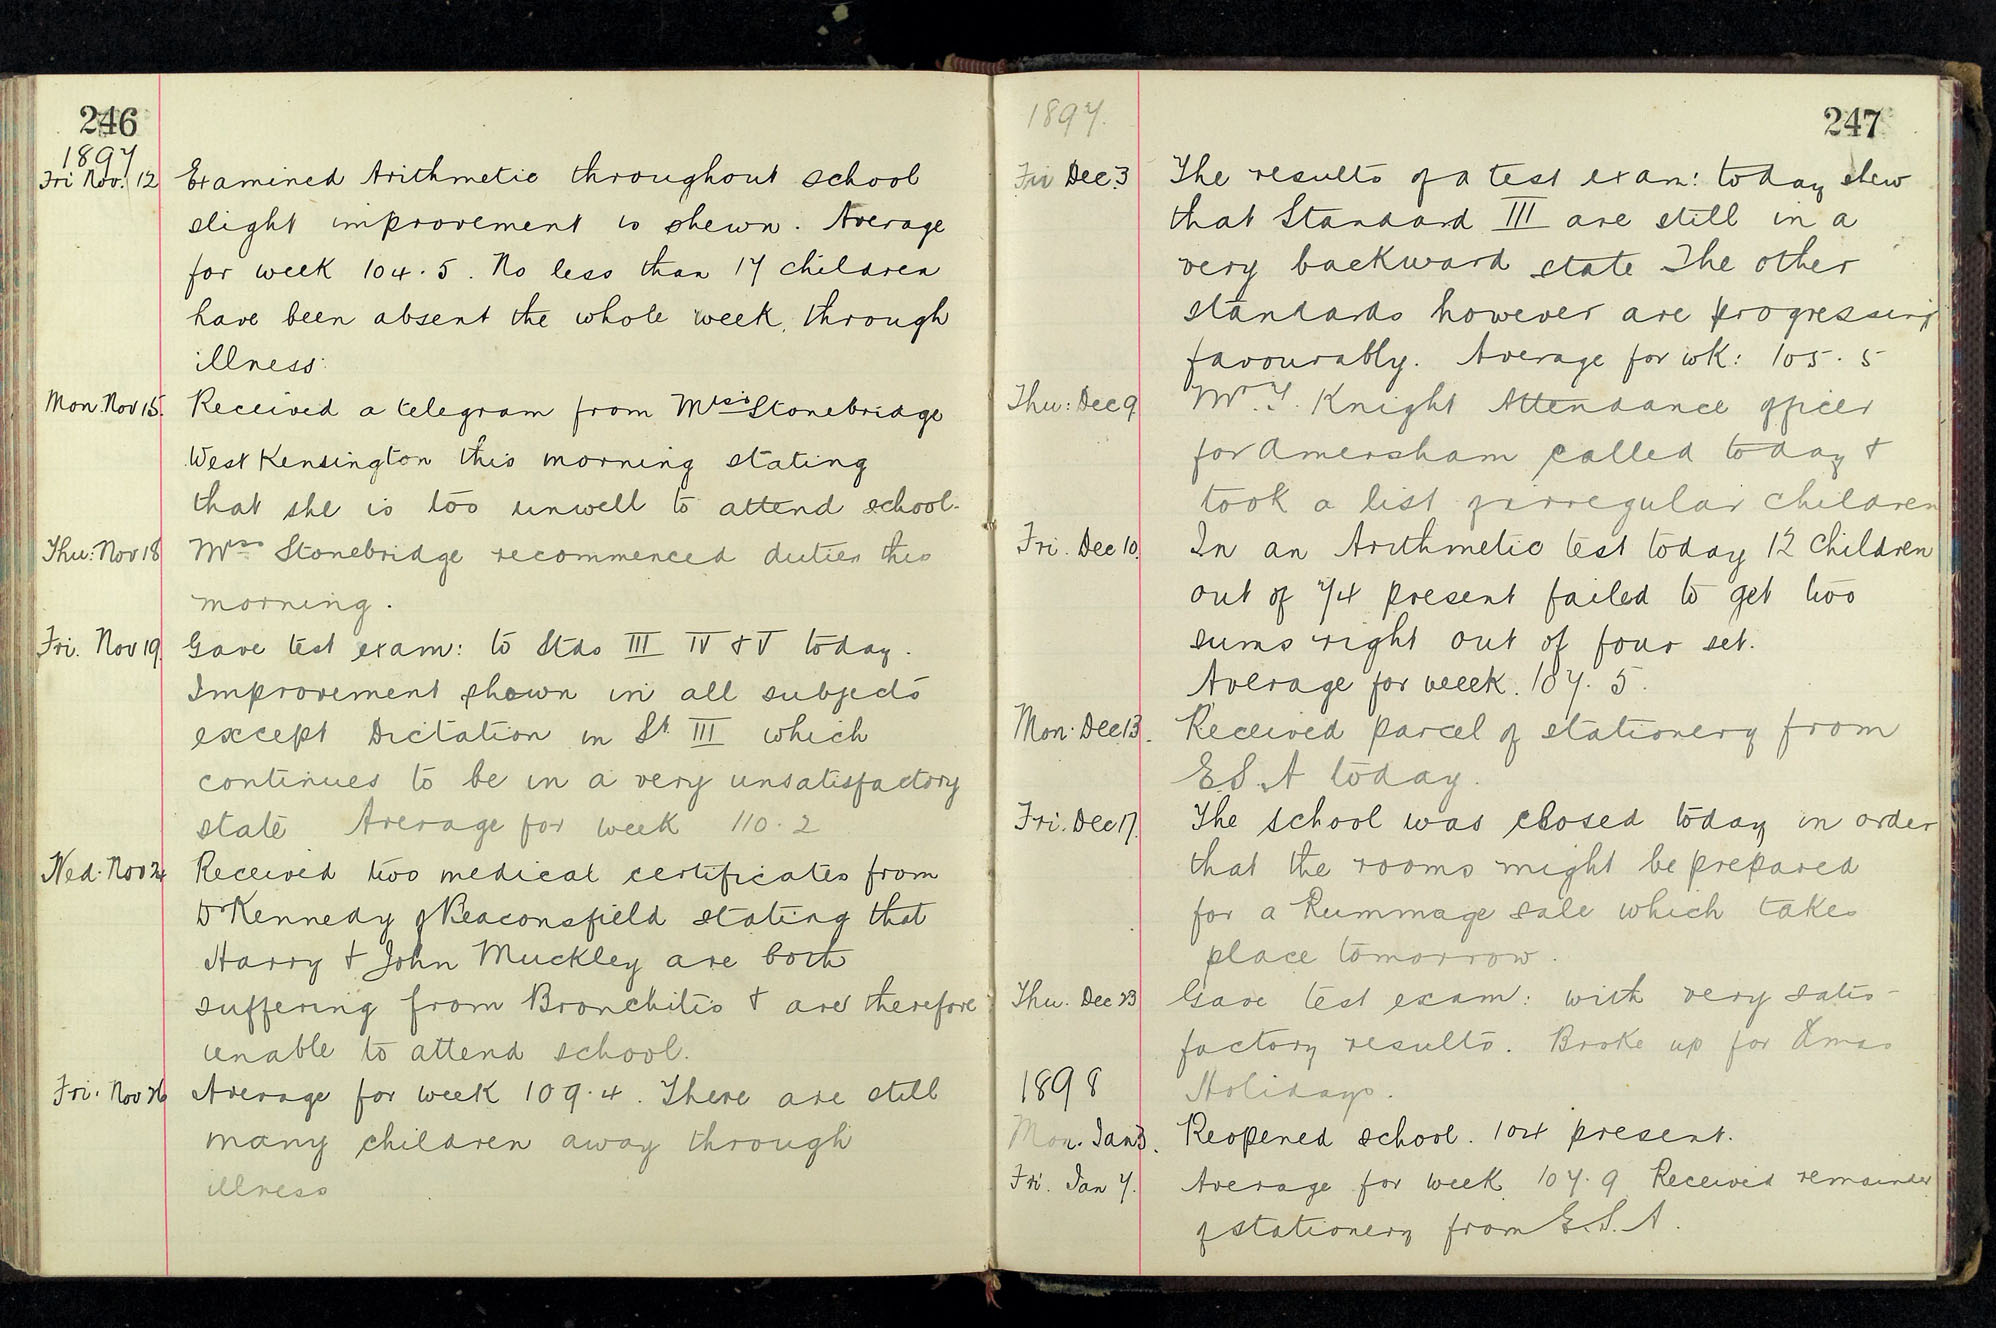 246
1897
Fri Nov. 12 Examined Arithmetic throughout school
slight improvement is shewn. Average
for week 104.5. No less than 17 children
have been absent the whole week, through
illness.
Mon. Nov 15. Received a telegram from Miss Stonebridge
West Kensington this morning stating
that she is too unwell to attend school.
Thu: Nov 18 Miss Stonebridge recommenced duties this
morning.
Fri. Nov 19. Gave test exam: to Stds III IV & V today.
Improvement shown in all subjects
except Dictation in St III which
continues to be in a very unsatisfactory
state Average for week 110.2
Wed. Nov 24 Received two medical certificates from
Dr Kennedy of Beaconsfield stating that
Harry & John Muckley are both
suffering from Bronchitis & are therefore
unable to attend school.
Fri. Nov 26 Average for week 109.4. There are still
many children away through
illness
1897.
247
Fri Dec. 3 The results of a test exam: today shew
that Standard III are still in a
very backward state The other
standards however are progressing
favourably. Average for wk: 105.5
Thu: Dec 9 Mr. Y. Knight Attendance officer
for Amersham called today &
took a list of irregular children
Fri. Dec 10. In an Arithmetic test today 12 children
out of 74 present failed to get two
sums right out of four set.
Average for week. 107.5.
Mon. Dec 13. Received parcel of stationery from
E.S.A today.
Fri. Dec 17. The school was closed today in order
that the rooms might be prepared
for a Rummage sale which takes
place tomorrow.
Thu. Dec 23 Gave test exam: with very satis-
factory results. Broke up for Xmas
1898 Holidays.
Mon. Jan 3. Reopened school. 104 present.
Fri. Jan 7. Average for week 107.9 Received remainder
of stationery from E.S.A.